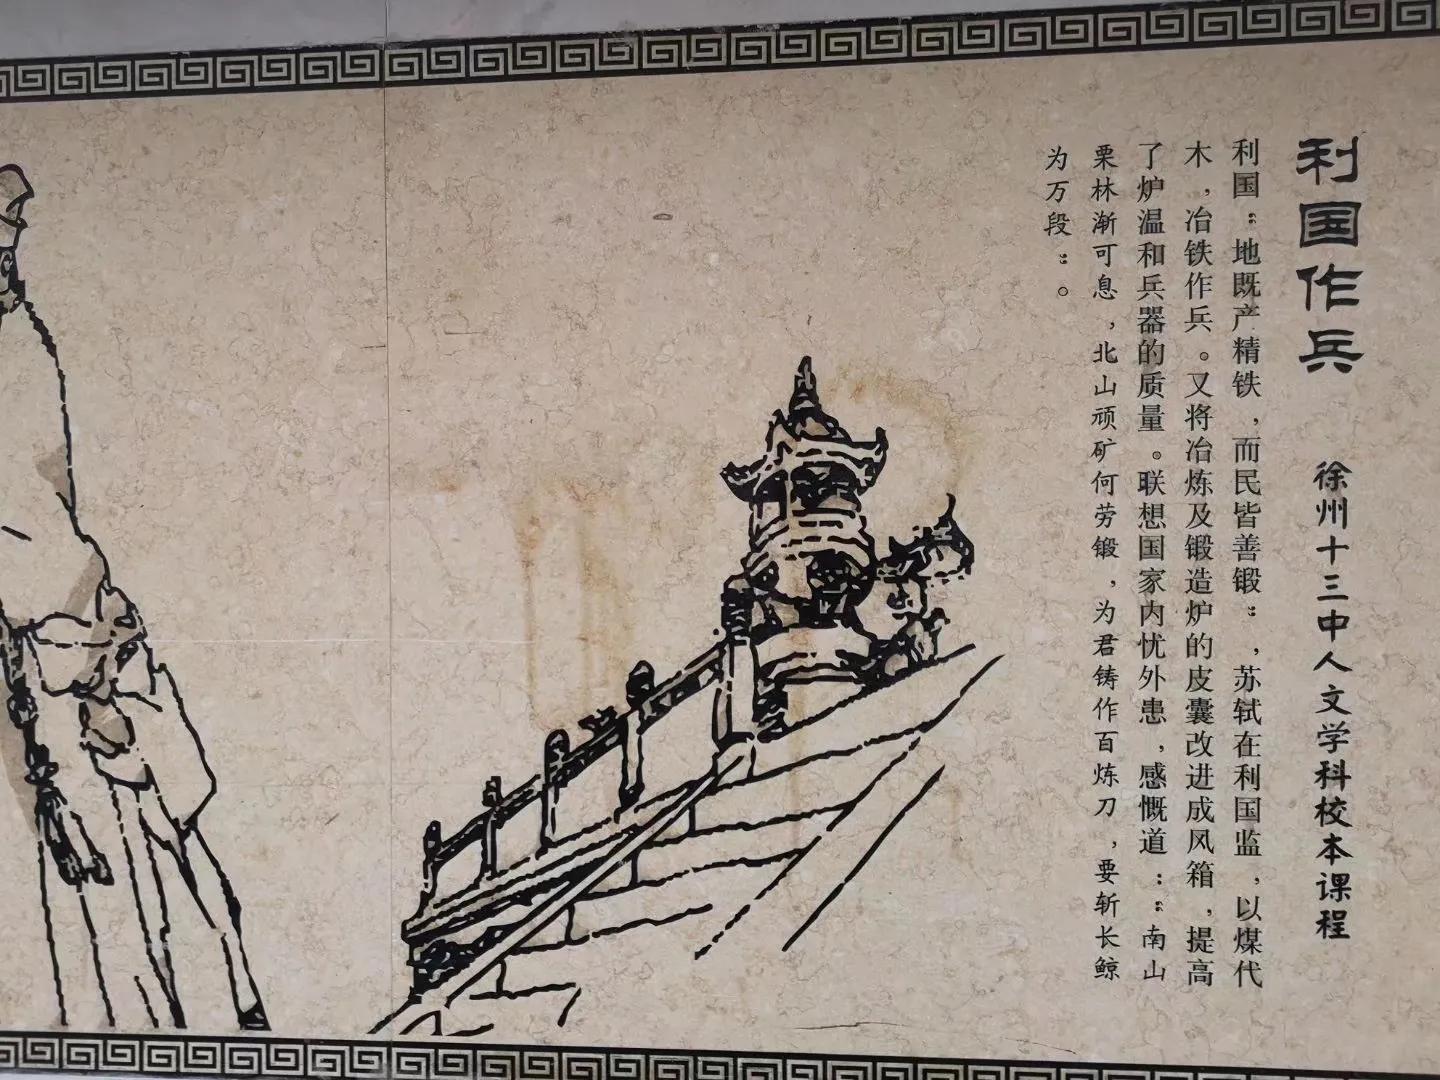 利国作兵
徐州十三中人文学科校本课程
利国“地既产精铁，而民皆善锻”，苏轼在利国监，以煤代
木，冶铁作兵。又将冶炼及锻造炉的皮囊改进成风箱，提高
了炉温和兵器的质量。联想国家内忧外患，感慨道：“南山
栗林渐可息，北山顽矿何劳锻，为君铸作百炼刀，要斩长鲸
为万段”。